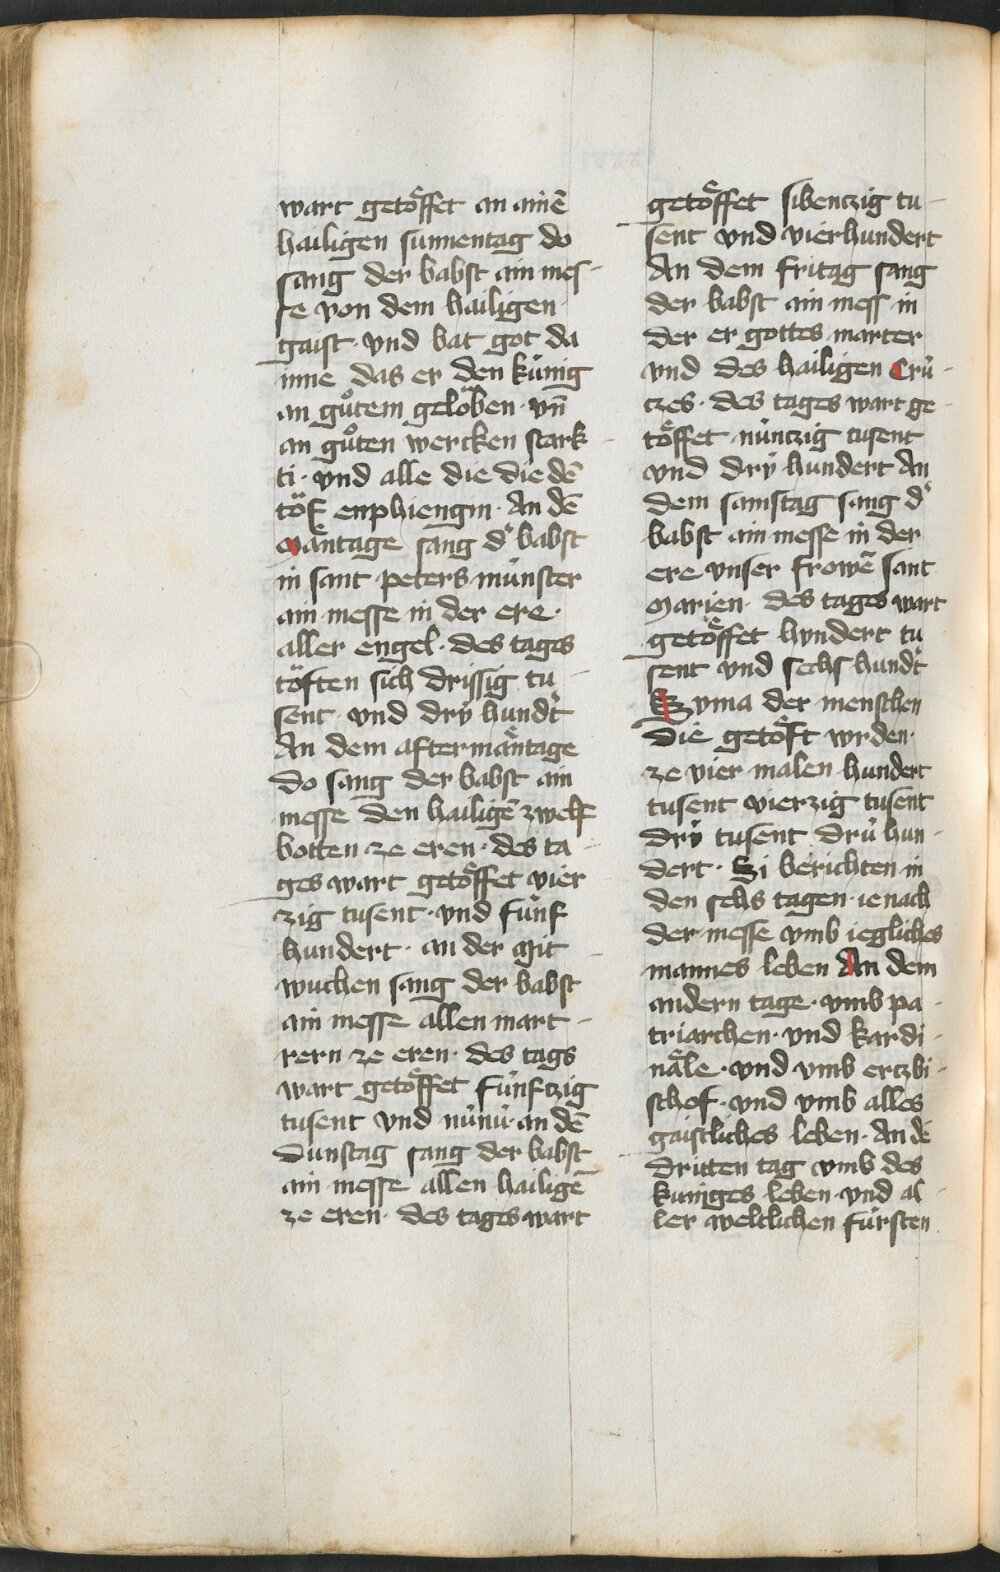 wart getoͤffet an ainē
hailigen sunnentag do
sang der babst ain mes-
se von dem hailigen
gaist · vnd bat got da
inne das er den kúnig
an guͦtem geloͤben · vn̄
an guͦten wercken stark-
ti · vnd alle die die dē
toͤf enphiengin · An dē
Maͤntage sang d᷑ babst
in sant peters múnster
ain messe in der ere ·
aller engel · des tages
toͤften sich drissig tu-
sent · vnd dry hundt᷑
An dem aftermaͤntage
do sang der babst ain
messe den hailigē zwelf
botten ze eren · des ta-
ges wart getoͤffet vier
zig tusent · vnd fúnf
hundert · an der mit-
wuchen sang der babst
ain messe allen mart-
rern ze eren · des tags
wart getoͤffet fúnftzig
tusent vnd núnú · an dē
Dunstag sang der babst
ain messe allen hailigē
ze eren · des tages wart
getoͤffet sibentzig tu-
sent vnd vierhundert
An dem fritag sang
der babst ain mess in
der er gottes marter
vnd des hailigen Crú-
tzes · des tages wart ge-
toͤffet núntzig tusent
vnd dry hundert An
dem samstag sang d᷑
babst ain messe in der
ere vnser frowē sant
Marien · des tages wart
getoͤffet hvndert tu-
sent vnd sechs hundt᷑
Svma der menschen
die getoͤft wrden ·
ze vier malen hundert
tusent vierzig tusent
dry tusent drú hun-
dert · Si berichten in
den sehs tagen · ie nach
der messe vmb iegliches
mannes leben An dem
andern tage · vmb pa-
triarchen · vnd kardi-
naͤle · vnd vmb ertzbi-
schof · vnd vmb alles
gaistliches leben · An dē
dritten tag vmb des
kuniges leben · vnd al-
ler weltlichen fúrsten